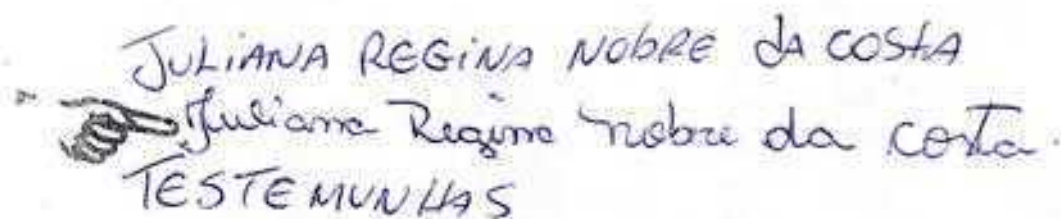 JULIANA REGINA NOBRE dA COSTA
Juliana Regina nobre da costa.
TESTEMUNHAS